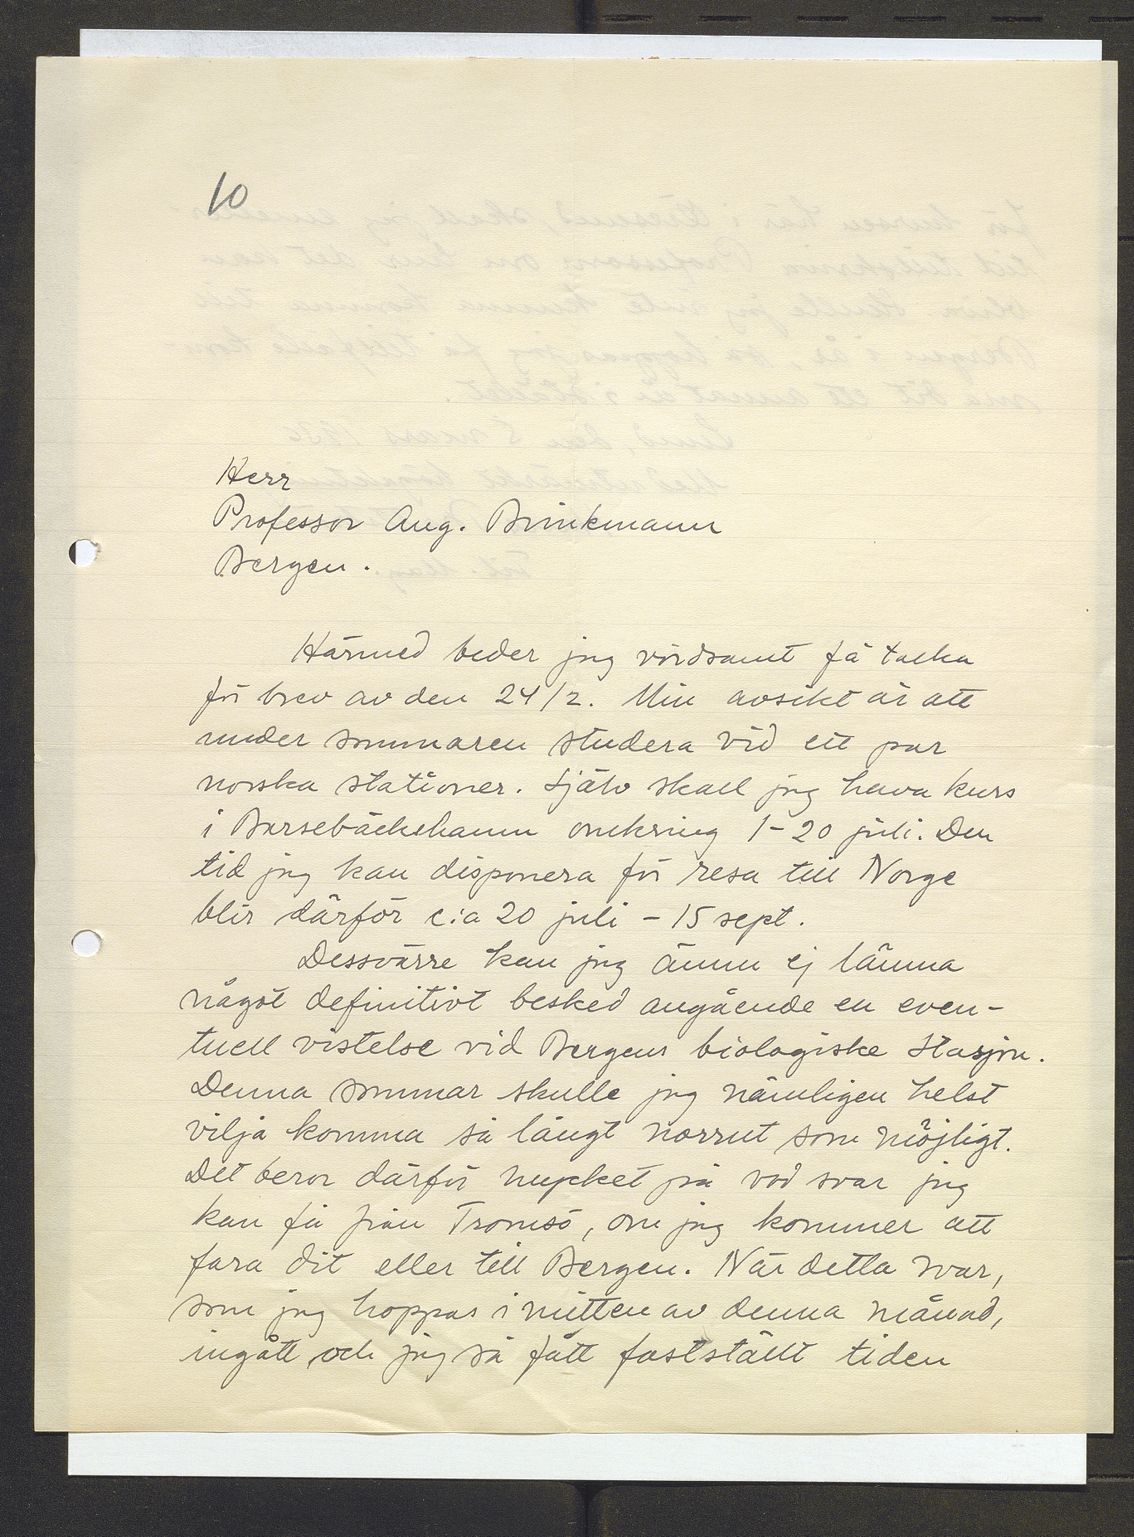 10
Herr
Professor Aug. Brinkmann
Bergen.
Härmed beder jag vördsamt få tacka
för brev av den 24/2. Min avsikt är att
under sommaren studera vid ett par
norska stationer. Själv skall jag hava kurs
i Barsebäckshamn omkring 1-20 juli. Den
tid jag kan disponera för resa till Norge
blir därför c:a 20 juli - 15 sept.
Dessvärre kan jag ännu ej lämna
något definitivt besked angående en even-
tuell vistelse vid Bergens biologiske Stasjon.
Denna sommar skulle jag nämligen helst
vilja komma så långt norrut som möjligt.
Det beror därför mycket på vad svar jag
kan få från Tromsö, om jag kommer att
fara dit eller till Bergen. När detta svar,
som jag hoppas i mitten av denna månad,
ingått och jag så fått fastställt tiden